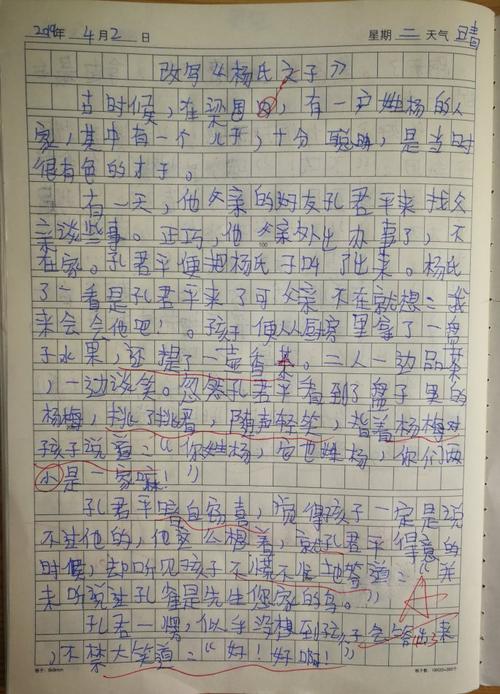 2019年 4月2 日 星期 二 天气 晴
改写《杨氏之子》
古时候，在梁国，有一户姓杨的人
家，其中有一个儿子，十分聪明，是当时
很有名的才子。
有一天，他父亲的好友孔君平来找父
亲谈些事。正巧，他父亲外出办事了，不
在家。孔君平便把杨氏子叫了出来。杨氏
了一看是孔君平来了可父亲不在就想：我
来会会他吧！孩子便从厨房里拿了一盘
子水果，还提了一壶香茶。二人一边品茶
，一边谈笑。忽然孔君平看到了盘子里的
杨梅，挑了挑眉，随声轻笑，指着杨梅对
孩子说道：“你姓杨，它也姓杨，你们两
小是一家嘛！”
孔君平暗自窃喜，觉得孩子一定是说
不过他的，他这么想着，就孔君平得意的
时候，却听见孩子不慌不忙地答道：“并
未听说过孔雀是先生您家的鸟。”
孔君一愣，似乎没想到孩子会答出来
，不禁大笑道：“好！好啊！”
A
100